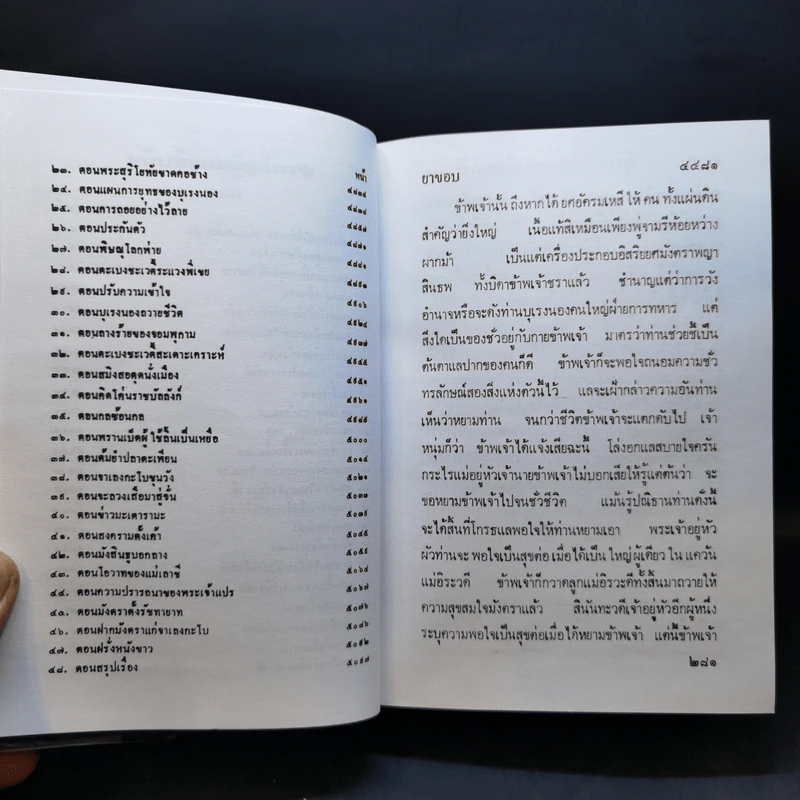 หน้า
๒๓. ตอนพระสุริโยทัยขาดคอช้าง
๒๔. ตอนแผนการยุทธของบุเรงนอง
๒๕. ตอนการถอยอย่างไว้ลาย
๒๖. ตอนประกันตัว
๒๗. ตอนพิษณุโลกพ่าย
๒๘. ตอนตะเบงชะเวตี้ระแวงพี่เขย
๒๙. ตอนปรับความเข้าใจ
๓๐. ตอนบุเรงนองถวายชีวิต
๓๑. ตอนลางร้ายของจอมพุกาม
๓๒. ตอนตะเบงชะเวตี้สะเดาะเคราะห์
๓๓. ตอนสมิงสอตุดนั่งเมือง
๓๔. ตอนคิดโค่นราชบัลลังก์
๓๕. ตอนกลซ้อนกล
๓๖. ตอนพรานเบ็ดผู้ใช้ลิ้นเป็นเหยื่อ ๕๐๐๐
๓๗. ตอนต้มยำปลาตะเพียน
๓๘. ตอนจาเลงกะโบขุนวัง ๕๐๒๑
๓๙. ตอนจะลวงเสือมาสู่จั่น ๕๐๓๓
๔๐. ตอนข่าวมะเดารามะ
๔๑. ตอนสงครามตั้งเค้า
๔๒. ตอนมังสินธูบอกลาง
๔๓. ตอนโอวาทของแม่เลาชี
๔๔. ตอนความปรารถนาของพระเจ้าแปร ๕๐๖๗
๔๕. ตอนมังตราตั้งรัชทายาท ๕๐๗๖
๔๖. ตอนฝากมังตราแก่จาเลงกะโบ ๕๐๘๖
๔๗. ตอนฝรั่งหนังขาว
๔๘. ตอนสรุปเรื่อง
ยาขอบ ๔๔๘๑
ข้าพเจ้านั้น ถึงหากได้ ยศอัครมเหสี ให้ คน ทั้งแผ่นดิน
สำคัญว่ายิ่งใหญ่ เนื้อแท้สิเหมือนเพียงพู่จามรีห้อยหว่าง
ผากม้า เป็นแต่เครื่องประกอบอิสริยยศมังตราพญา
สินธพ ทั้งบิดาข้าพเจ้าชราแล้ว ชำนาญแต่ว่าการวัง
อำนาจหรือจะดังท่านบุเรงนองคนใหญ่ฝ่ายการทหาร แต่
สิ่งใดเป็นของชั่วอยู่กับกายข้าพเจ้า มาตรว่าท่านช่วยชี้เป็น
ต้นตาแลปากของคนก็ดี ข้าพเจ้าก็จะพอใจถนอมความชั่ว
ทรลักษณ์สองสิ่งแห่งตัวนี้ไว้ แลจะเฝ้ากล่าวความอันท่าน
เห็นว่าหยามท่าน จนกว่าชีวิตข้าพเจ้าจะแตกดับไป เจ้า
หนุ่มก็ว่า ข้าพเจ้าได้แจ้งเสียฉะนี้ โล่งอกแลสบายใจครัน
กระไรแม่อยู่หัวเจ้านายข้าพเจ้าไม่บอกเสียให้รู้แต่ต้นว่า จะ
ขอหยามข้าพเจ้าไปจนชั่วชีวิต แม้นรู้ปณิธานท่านดั่งนี้
จะได้สิ้นที่โกรธแลพอใจให้ท่านหยามเอา พระเจ้าอยู่หัว
ผัวท่านจะ พอใจเป็นสุขต่อ เมื่อ ได้เป็น ใหญ่ ผู้เดียว ใน แคว้น
แม่อิระวดี ข้าพเจ้าก็กวาดลูกแม่อิรวะดีทั้งสิ้นมาถวายให้
ความสุขสมใจมังตราแล้ว สินันทะวดีเจ้าอยู่หัวอีกผู้หนึ่ง
ระบุความพอใจเป็นสุขต่อเมื่อ ได้หยามข้าพเจ้า แต่นี้ข้าพเจ้า
๒๘๑